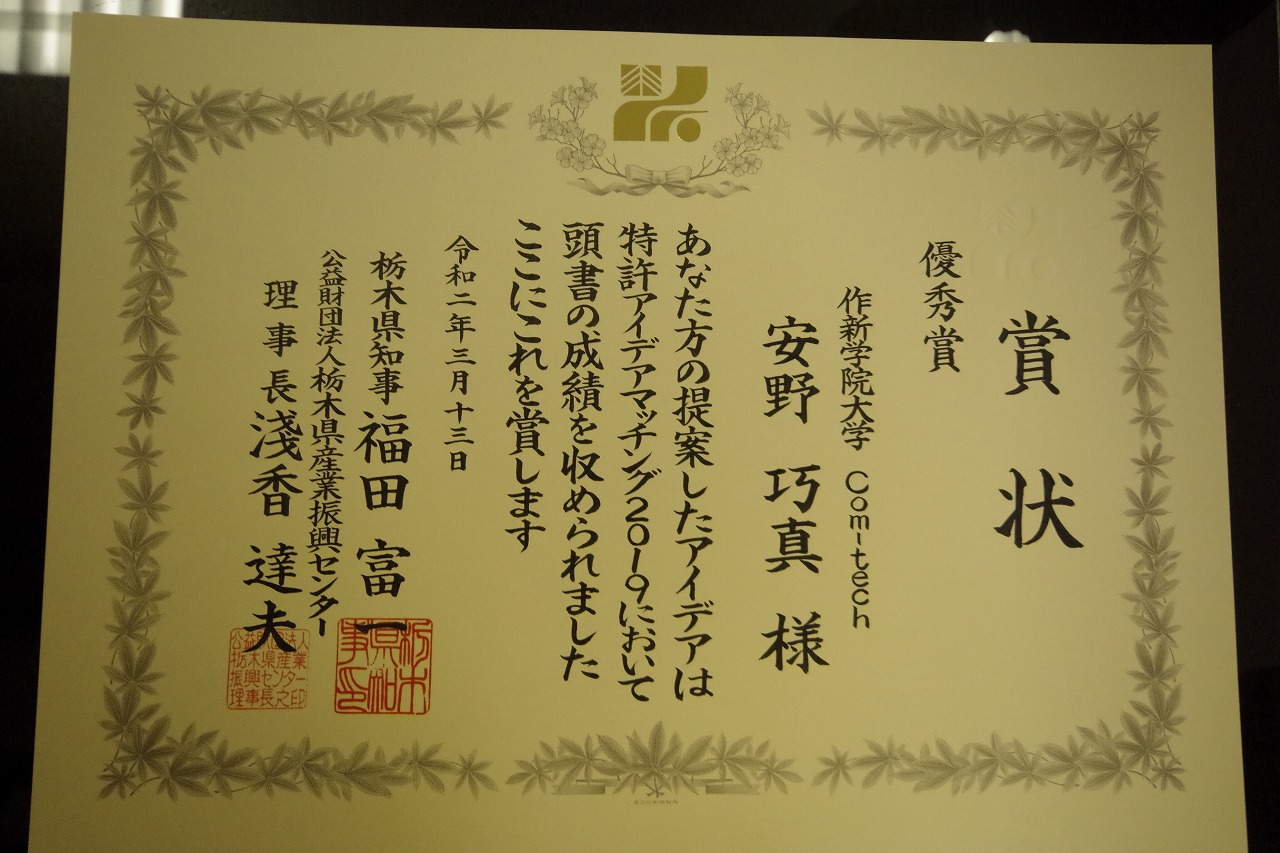 賞状
優秀賞
作新学院大学 Com-tech
安野 巧真 様
あなた方の提案したアイデアは
特許アイデアマッチング2019において
頭書の成績を収められました
ここにこれを賞します
令和二年三月十三日
栃木県知事 福田 富一
公益財団法人栃木県産業振興センター
理事長 淺香 達夫
栃木
県知
事印
公益財団法人
栃木県産業
振興センター
理事長之印